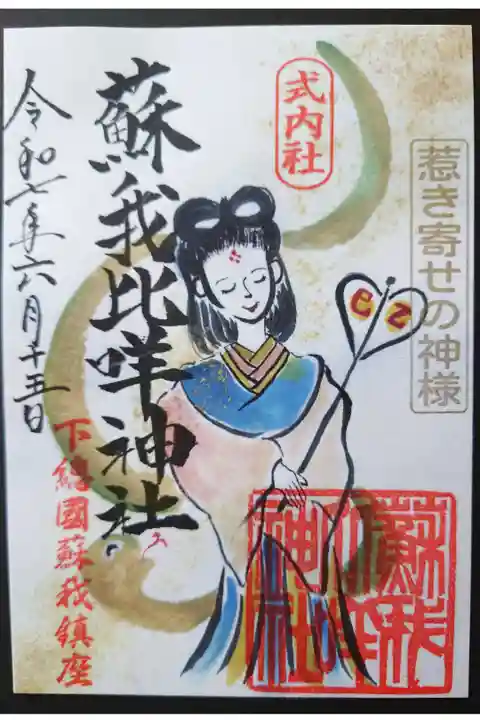 式内社
惹き寄せの神様
蘇我比咩神社
令和七年六月十五日
下總國蘇我鎮座